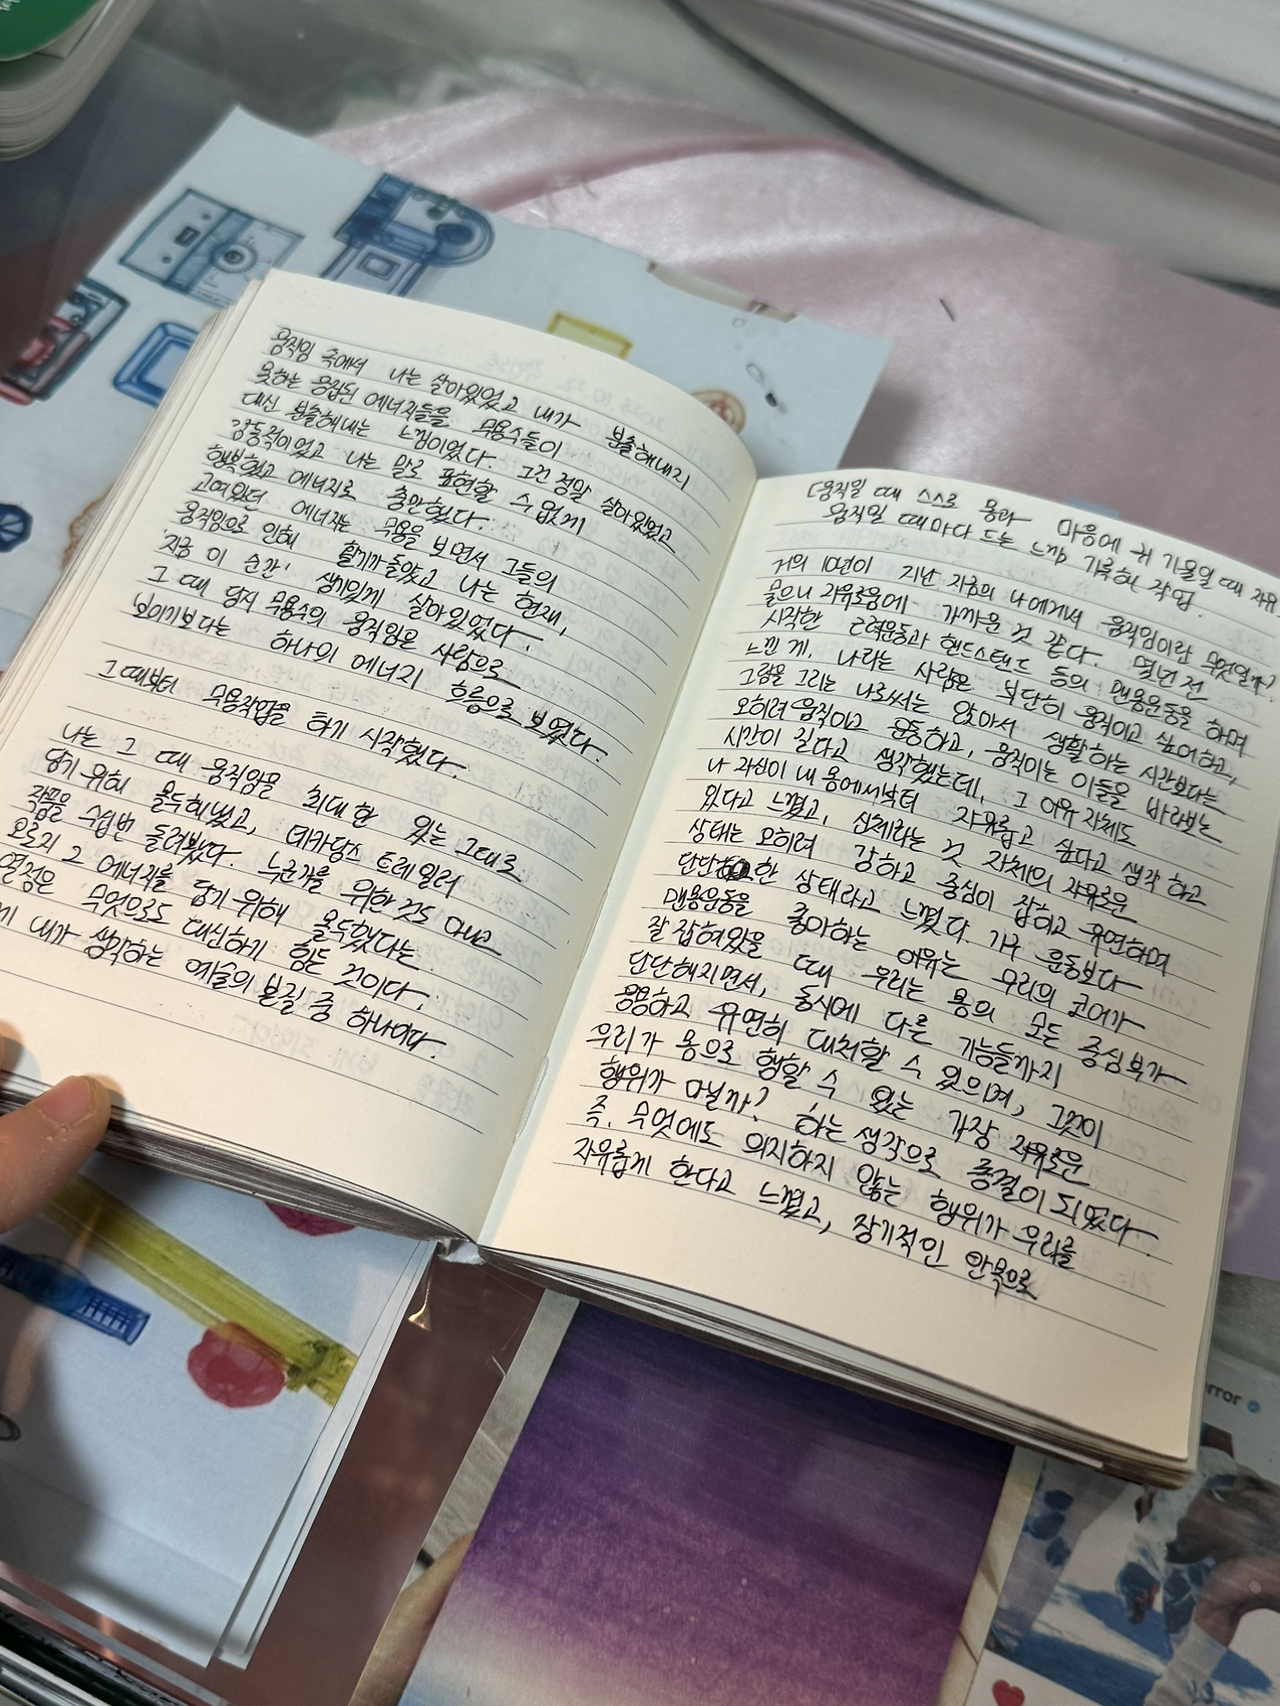 움직임 속에서 나는 살아있었고 내가 분출해내지
못하는 응집된 에너지들을 무용수들이
대신 분출해내는 느낌이었다. 그건 정말 살아있었고
감동적이었고 나는 말로 표현할 수 없게
행복했고 에너지로 충만했다.
고여있던 에너지는 무용을 보면서 그들의
움직임으로 인해 활기가 돌았고 나는 현재,
'지금 이 순간' 생기있게 살아있었다.
그 때 당시 무용수의 움직임은 사람으로
보이기보다는 하나의 에너지 흐름으로 보였다.
그때부터 무용작업을 하기 시작했다.
나는 그 때 움직임을 최대한 있는 그대로
담기 위해 몰두해있고, 데카당스 트레일러
작품을 수십번 돌려봤다. 누군가를 위한 것도 아니고
오로지 그 에너지를 담기 위해 몰두했다는
열정은 무엇으로도 대신하기 힘든 것이다.
게 내가 생각하는 예술의 본질 중 하나이다.
[움직일 때 스스로 몸과 마음에 귀 기울일 때 자유
움직일 때마다 드는 느낌 기록하는 작업.
거의 10년이 지난 지금의 나에게서 움직임이란 무엇일까?
물으니 자유로움에 가까운 것 같다. 몇년 전
시작한 근력운동과 핸드스탠드 등의 맨몸운동을 하며
느낀 게, 나라는 사람은 부단히 움직이고 싶어하고,
그림을 그리는 나로써는 앉아서 생활하는 시간보다는
오히려 움직이고 운동하고, 움직이는 이들을 바라보는
시간이 길다고 생각했는데, 그 이유 자체도
나 자신이 내 몸에서부터 자유롭고 싶다고 생각하고
있다고 느꼈고, 신체라는 것 자체의 자유로운
상태는 오히려 강하고 중심이 잡히고 유연하며
단단한 상태라고 느꼈다. 기구 운동보다
맨몸운동을 좋아하는 이유는 우리의 코어가
잘 잡혀있을 때 우리는 몸의 모든 중심부가
단단해지면서, 동시에 다른 기능들까지
응용하고 유연히 대처할 수 있으며, 그것이
우리가 몸으로 행할 수 있는 가장 자유로운
행위가 아닐까? 하는 생각으로 종결이 되었다.
즉, 무엇에도 의지하지 않는 행위가 우리를
자유롭게 한다고 느꼈고, 장기적인 안목으로
rror